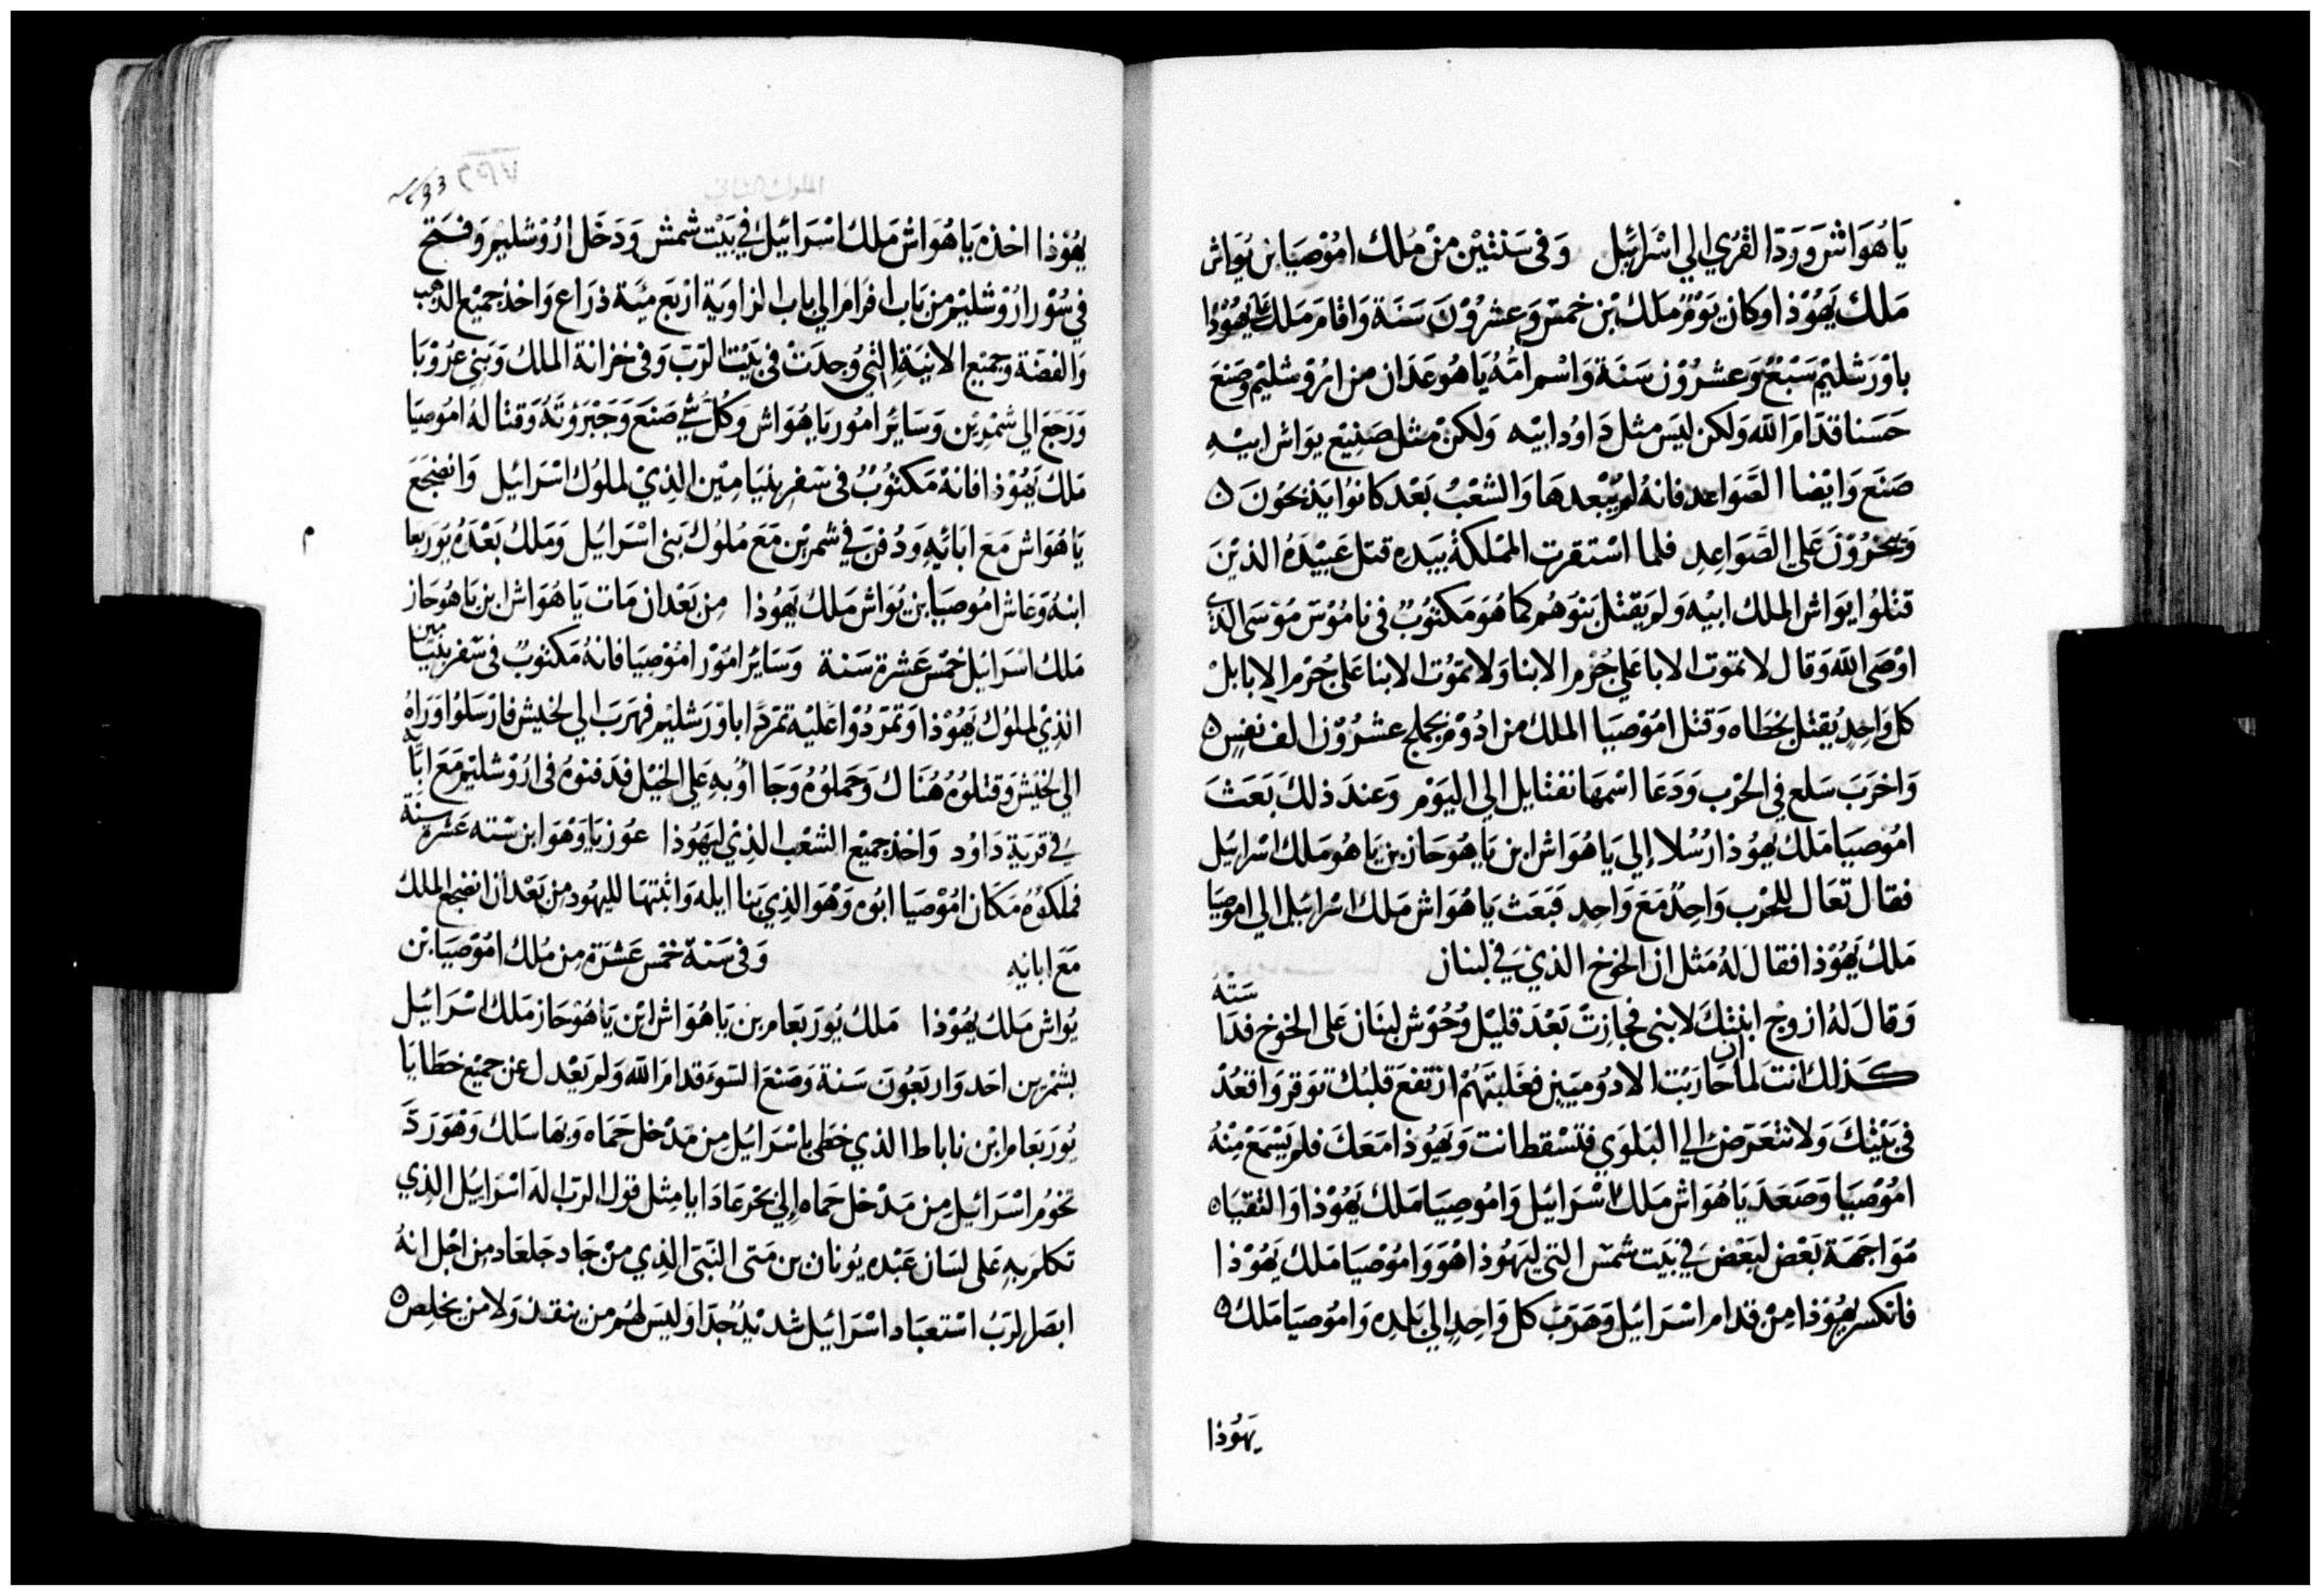 يَاهُوَاش وَرَدَ القرَي الي اسْرَائيل وَفى سَنتيْن منْ مُلك امُوْصيَا بن يُوَاش
مَلك يَهُوْذا وكان يَوْمَ مَلك بْن خمسَ وَعشرُوْنَ سَنَة وَاقامَ مَلك عَلى يهُوْذا
باوْرَشليْم سَبْعَ وَعشرُوْن سَنَة وَاسْم امُّهُ يَاهُوعَدَان من ارُوْشليْم وَصَنعَ
حَسَنا قدَّامَ اللَّه وَلكن ليَس مثل دَاوُد ابيْه وَلكنْ مثل صَنِيْع يوَاش ابيْهِ
صَنع وَايْضا الصَّوَاعد فانهُ لم يُبْعدهَا وَالشعْبُ بَعْد كانوُا يَذبحُونَ ٥
وَيبخرُوْنَ عَلي الصَّوَاعِدِ فلما اسْتقرت المَملكةُ بيَدهِ قتل عَبيْدَهُ الذيْنَ
قتلوُا يوَاش الملك ابيْه وَلم يَقتل بَنوهُم كما هوَ مَكتوُبٌ فى نامُوْسَ مُوْسَى الذي
اوْصَى اللَّه وَقال لا تموُت الابا عَلي جُرْم الابنا وَلا تموُت الابنا عَلي جُرْم الابا بلْ
كل وَاحِدٍ يُقتل بخطاه وَقتل امُوْصيَا الملك من ادُوْم بجملح عشرُوْن الف نفسٍ ٥
وَاخرَبَ سَلع في الحَرْب وَدَعَا اسْمهَا نفتايل الي اليَوْم وَعندَ ذلكَ بَعَثَ
امُوْصيَا مَلك يهُوْذا رُسُلا إلي يَاهُوَاش ابن يَاهُوحَاز بن يَاهُو مَلك اسْرائيل
فقال تعَال للحَرْب وَاحِدٌ مَعَ وَاحِدٍ فبَعَث يَاهُوَاش مَلك اسْرَائيل الي امُوصيَا
مَلك يَهُوْذا فقال لهُ مَثل ان الخوخ الذيْ في لبنان
وَقال لهُ ازوج ابنتك لابنى فجازت بَعْدَ قليْل وُحُوْش لبْنَان عَلى الخوخ فدَاسَتهُ
كذلك انت لما ان حَارَبْت الادُوميين فغلبْتهُمْ ارْتفعَ قلبُك توَقر وَاقعُدْ
فى بَيْتك وَلا تتعَرَض الي البَلوَي فتسْقط انت وَيَهُوذا مَعَكَ فلم يَسْمَعْ منْهُ
امُوْصيَا وَصَعَدَ يَاهُوَاش مَلك اسْرَائيل وَامُوصيَا مَلك يَهُوْذا وَالتقيَاه
مُوَاجَهَة بَعْض لبَعْضَ في بَيت شمْس التي ليَهُوذا هُوَ وَامُوْصيَا مَلك يَهُوْذا
فانكسر يهُوْذا مِنْ قدام اسْرَائيل وَهَرَبَ كل وَاحِدٍ الي بَلدِه وَامُوْصيَا مَلك ٥
يَهُوْذا
يهُوْذا اخذه يَاهُوَاش مَلك اسْرَائيل في بَيْت شمش وَدَخَل ارُوْشليْم وَفتح
في سُوْر ارُوْشليْم من بَاب افرَام الي باب الزاويَة ارْبَع مئَة ذرَاع وَاخذ جميْع الذهب
وَالفضَة وَجميْع الانيَة التي وُجدَتْ فى بَيْت الرَبّ وَفى خزانة الملك وَبَنِي عرُوْبَا
وَرَجَعَ الي شمْرين وَسَايرُ امُور يَاهُوَاش وَكُل شي صَنع وَجَبْرَوُته وَقتاله امُوصيَا
مَلك يَهُوْذا فانهُ مَكتوُبٌ فى سفر بنيَامِيْن الذيْ لملوُك اسْرَائيل وَانضجَعَ
يَاهُوَاش مَعَ ابَائهِ وَدُفنَ في شمرين مَعَ مُلوُك بَنى اسْرَائيل وَمَلك بَعْدَهُ يُوربَعَا
م
ابنهُ وَعَاش امُوصيَا بن يُوَاش مَلك يَهُوُذا مِن بَعْد ان مَات يَاهُوَاش ابن يَاهُوحَاز
مَلك اسْرَائيل خمْسَ عَشرة سَنة وَسَايرُ امُوْر امُوْصِيَا فانهُ مَكتوبٌ فى سفر بنيَامين
الذيْ لملوُك يَهُوْذا وَتمَردُوْا عَليْه تمَرُّدًا باوْرَشليْم فهَرَب الي لخيش فارْسَلوُا وَرَاهُ
الي لخيْش وَقتلوُهُ هُنَاك وَحَملوُهُ وَجَاأوُ بهِ عَلي الخيْل فدَفنوُهُ فى ارُوْشليْم مَعَ ابَائه
في قرَيةِ دَاوُد وَاخذ جميْع الشعْب الذيْ ليَهُوُذا عوزيَا وَهْوَ ابن سته عَشرة سنة
فملكوُهُ مَكَان امُوْصيَا ابُوه وَهْوَ الذي بَنا ايله وَاثبتهَا لليهُود مِن بَعْد ان انضجع الملك
مَعَ ابائِهِ وَفى سَنة خمْسَ عَشرَة مِن مُلك امُوْصيَا بْن
يُوَاش مَلك يَهُوْذا مَلك يُورَبَعَام بن يَاهُوَاش ابْن يَاهُوْحَاز مَلك اسْرَائيل
بشمْرين احَد وَارْبَعُونَ سَنة وَصَنعَ السَوءَ قدامَ اللَّه وَلم يَعْدل عن جميْع خطَايَا
يُورَبَعَام ابْن ناباط الذي خطى باسْرَائيل مِن مَدْخل حَمَاه وَبهَا سَلك وَهْوَ رَدَّ
تخوُم اسْرَائيل مِن مَدْخل حَمَاه إلي بَحْر عَادَابا مِثل قول الرَبّ اله اسْرَائيل الذِي
تكلم بهِ عَلى لسَان عَبْده يُونان بن مَتى النَبيّ الذِي منْ جَاد جَلعَاد مِن اجْل انهُ
ابصَر الرَبُّ اسْتعبَاد اسْرَائيل شديْدٌ جدَا وَليْسَ لهُم من ينقذ وَلا من يخلِص ٥